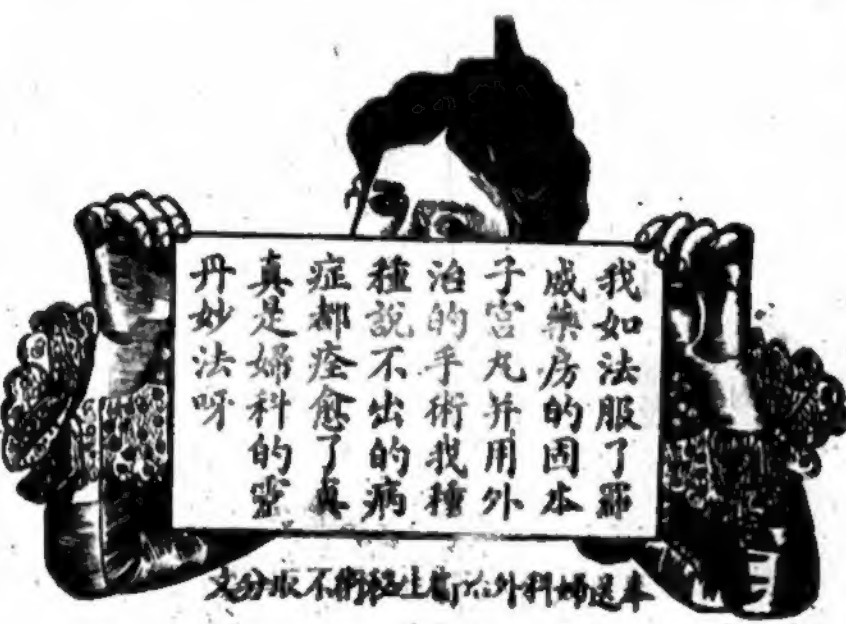 我如法服了羅
威藥房的固本
子宮丸并用外
治的手術我種
種說不出的病
症都痊愈了真
真是婦科的靈
丹妙法呀
奉送婦科外治衛生術不取分文